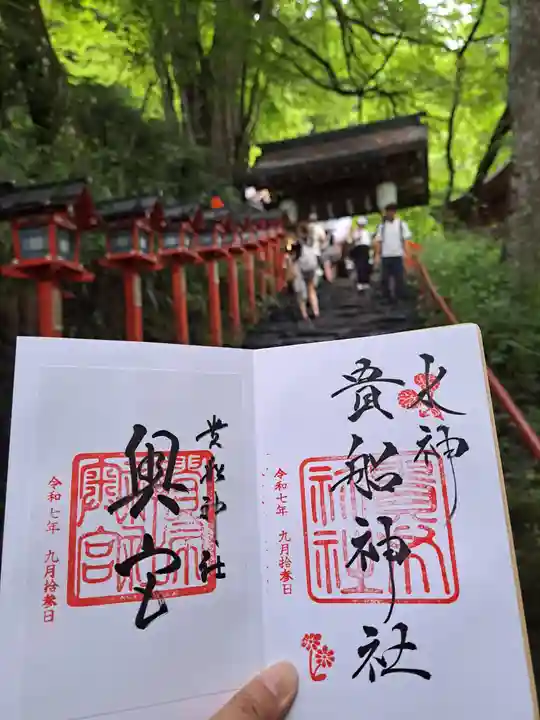 水神
貴船神社
令和七年 九月拾叁日
貴船神社
奥宮
令和七年 九月拾叁日